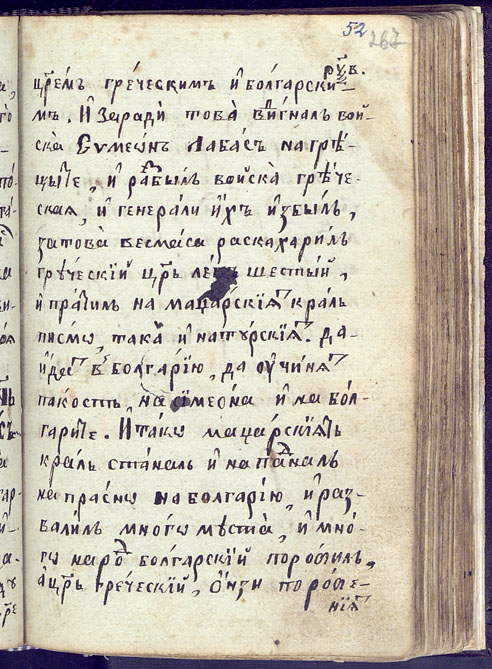 52 267
рѹ҃в.
цр҃емъ греческимъ и болгарски-
мъ. И заради това вигналъ вой-
ска Сѵмеѡнъ Лабасъ на грѣ-
цыте, и разбылъ войска грѣче-
ская, и генерали ихъ избылъ,
затова весмаса раскахарилъ
грѣческїй цр҃ь левъ шестый,
и пратилъ на маџарскїятъ краль
писмо, така и на турскїятъ. да
идетъ в болгарїю, да ѹчинятъ
пакость, на сїмеѡна и на бол-
гарите. И такѡ маџарскїятъ
краль станалъ и нападналъ
напраснѡ на болгарїю, и раз-
валилъ многѡ мѣста, и мнѡ-
гѡ народъ болгарскїй поробилъ,
а цр҃ь греческїй, ѡнзи поробле-
нїятъ